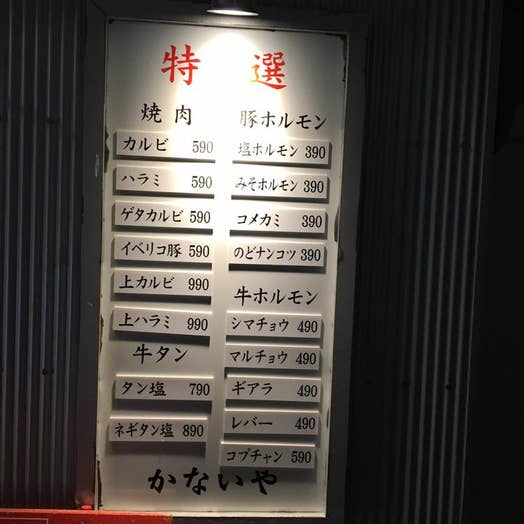 特選
焼肉
カルビ 590
ハラミ 590
ゲタカルビ 590
イベリコ豚 590
上カルビ 990
上ハラミ 990
牛タン
タン塩 790
ネギタン塩 890
豚ホルモン
塩ホルモン 390
みそホルモン 390
コメカミ 390
のどナンコツ 390
牛ホルモン
シマチョウ 490
マルチョウ 490
ギアラ 490
レバー 490
コプチャン 590
かないや